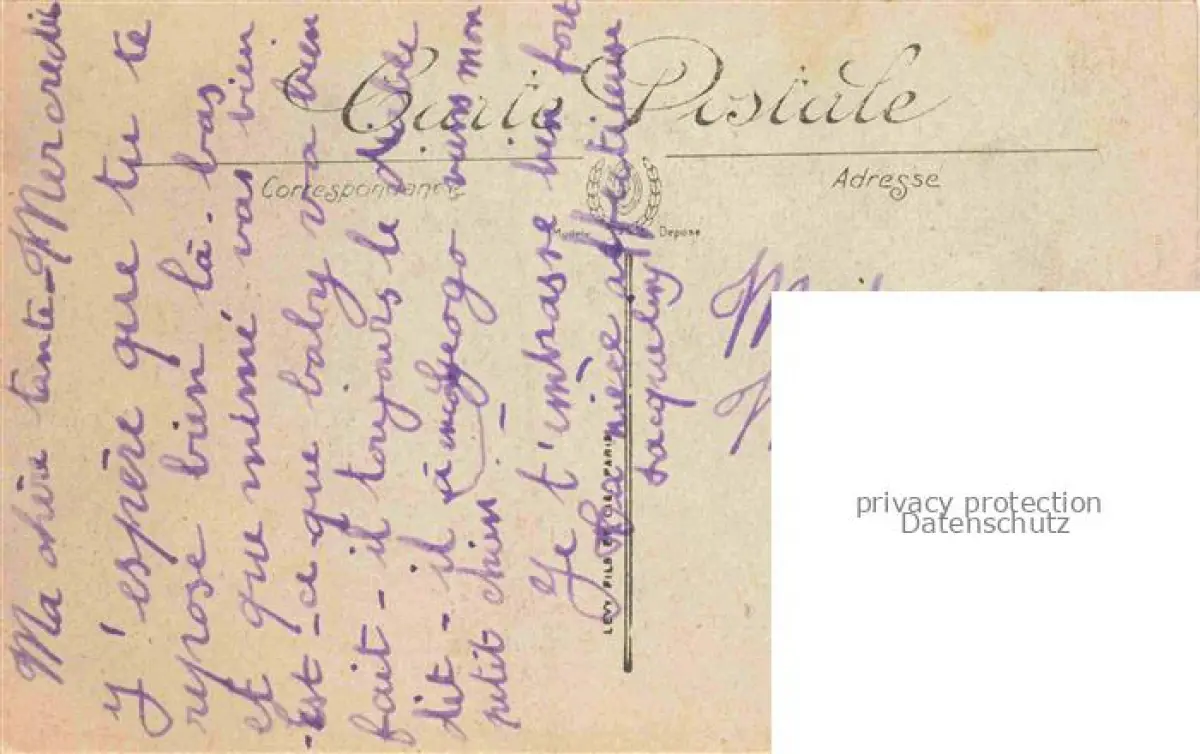 Carte Postale
Correspondance
Adresse
Modèle Déposé
LEVY FILS ET CIE, PARIS
Ma chère tante - Mercredi
j'espère que tu te
repose bien là-bas
et que mémé vas bien
-Est-ce que baby va bien
fait-il toujours le diable
dit-il à viens mon
petit chien -
Je t'embrasse bien fort
Ta nièce affectueuse
Jacqueline
privacy protection
Datenschutz